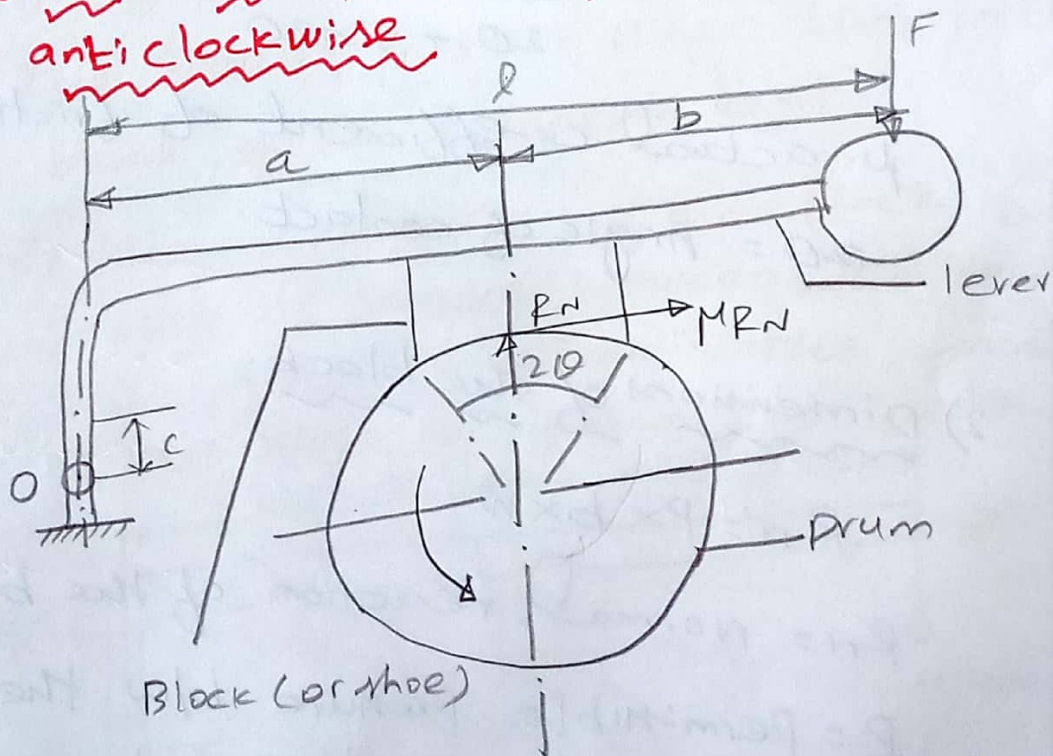 anticlockwise
F
l
b
a
lever
RN
μRN
2θ
c
O
Drum
Block (or shoe)